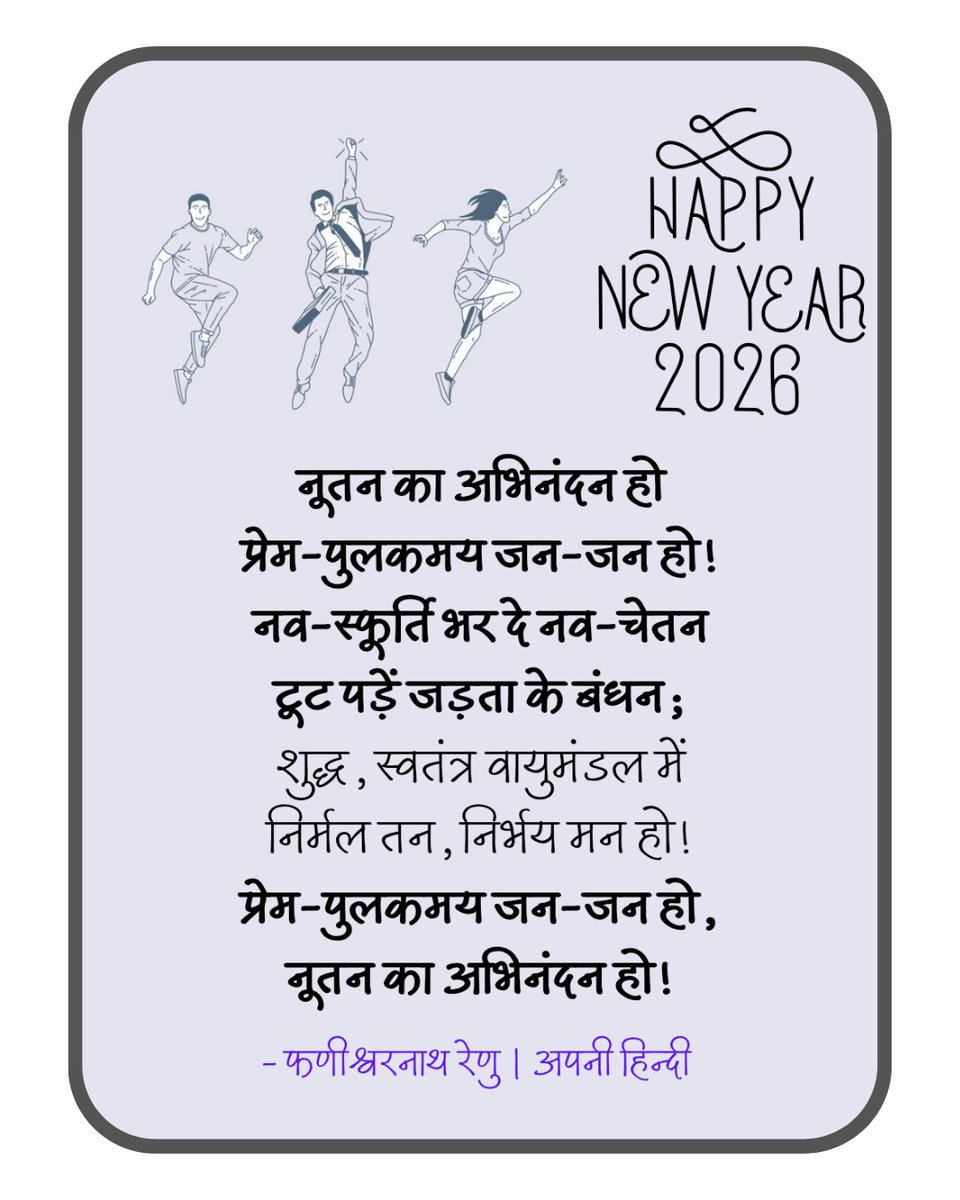 HAPPY
NEW YEAR
2026
नूतन का अभिनंदन हो
प्रेम-पुलकमय जन-जन हो!
नव-स्फूर्ति भर दे नव-चेतन
टूट पड़ें जड़ता के बंधन;
शुद्ध, स्वतंत्र वायुमंडल में
निर्मल तन, निर्भय मन हो!
प्रेम-पुलकमय जन-जन हो,
नूतन का अभिनंदन हो!
- फणीश्वरनाथ रेणु | अपनी हिन्दी